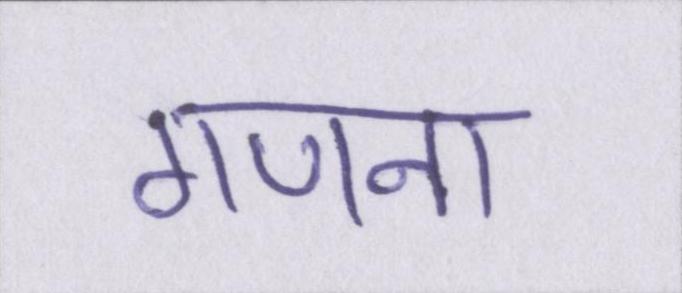 गणना